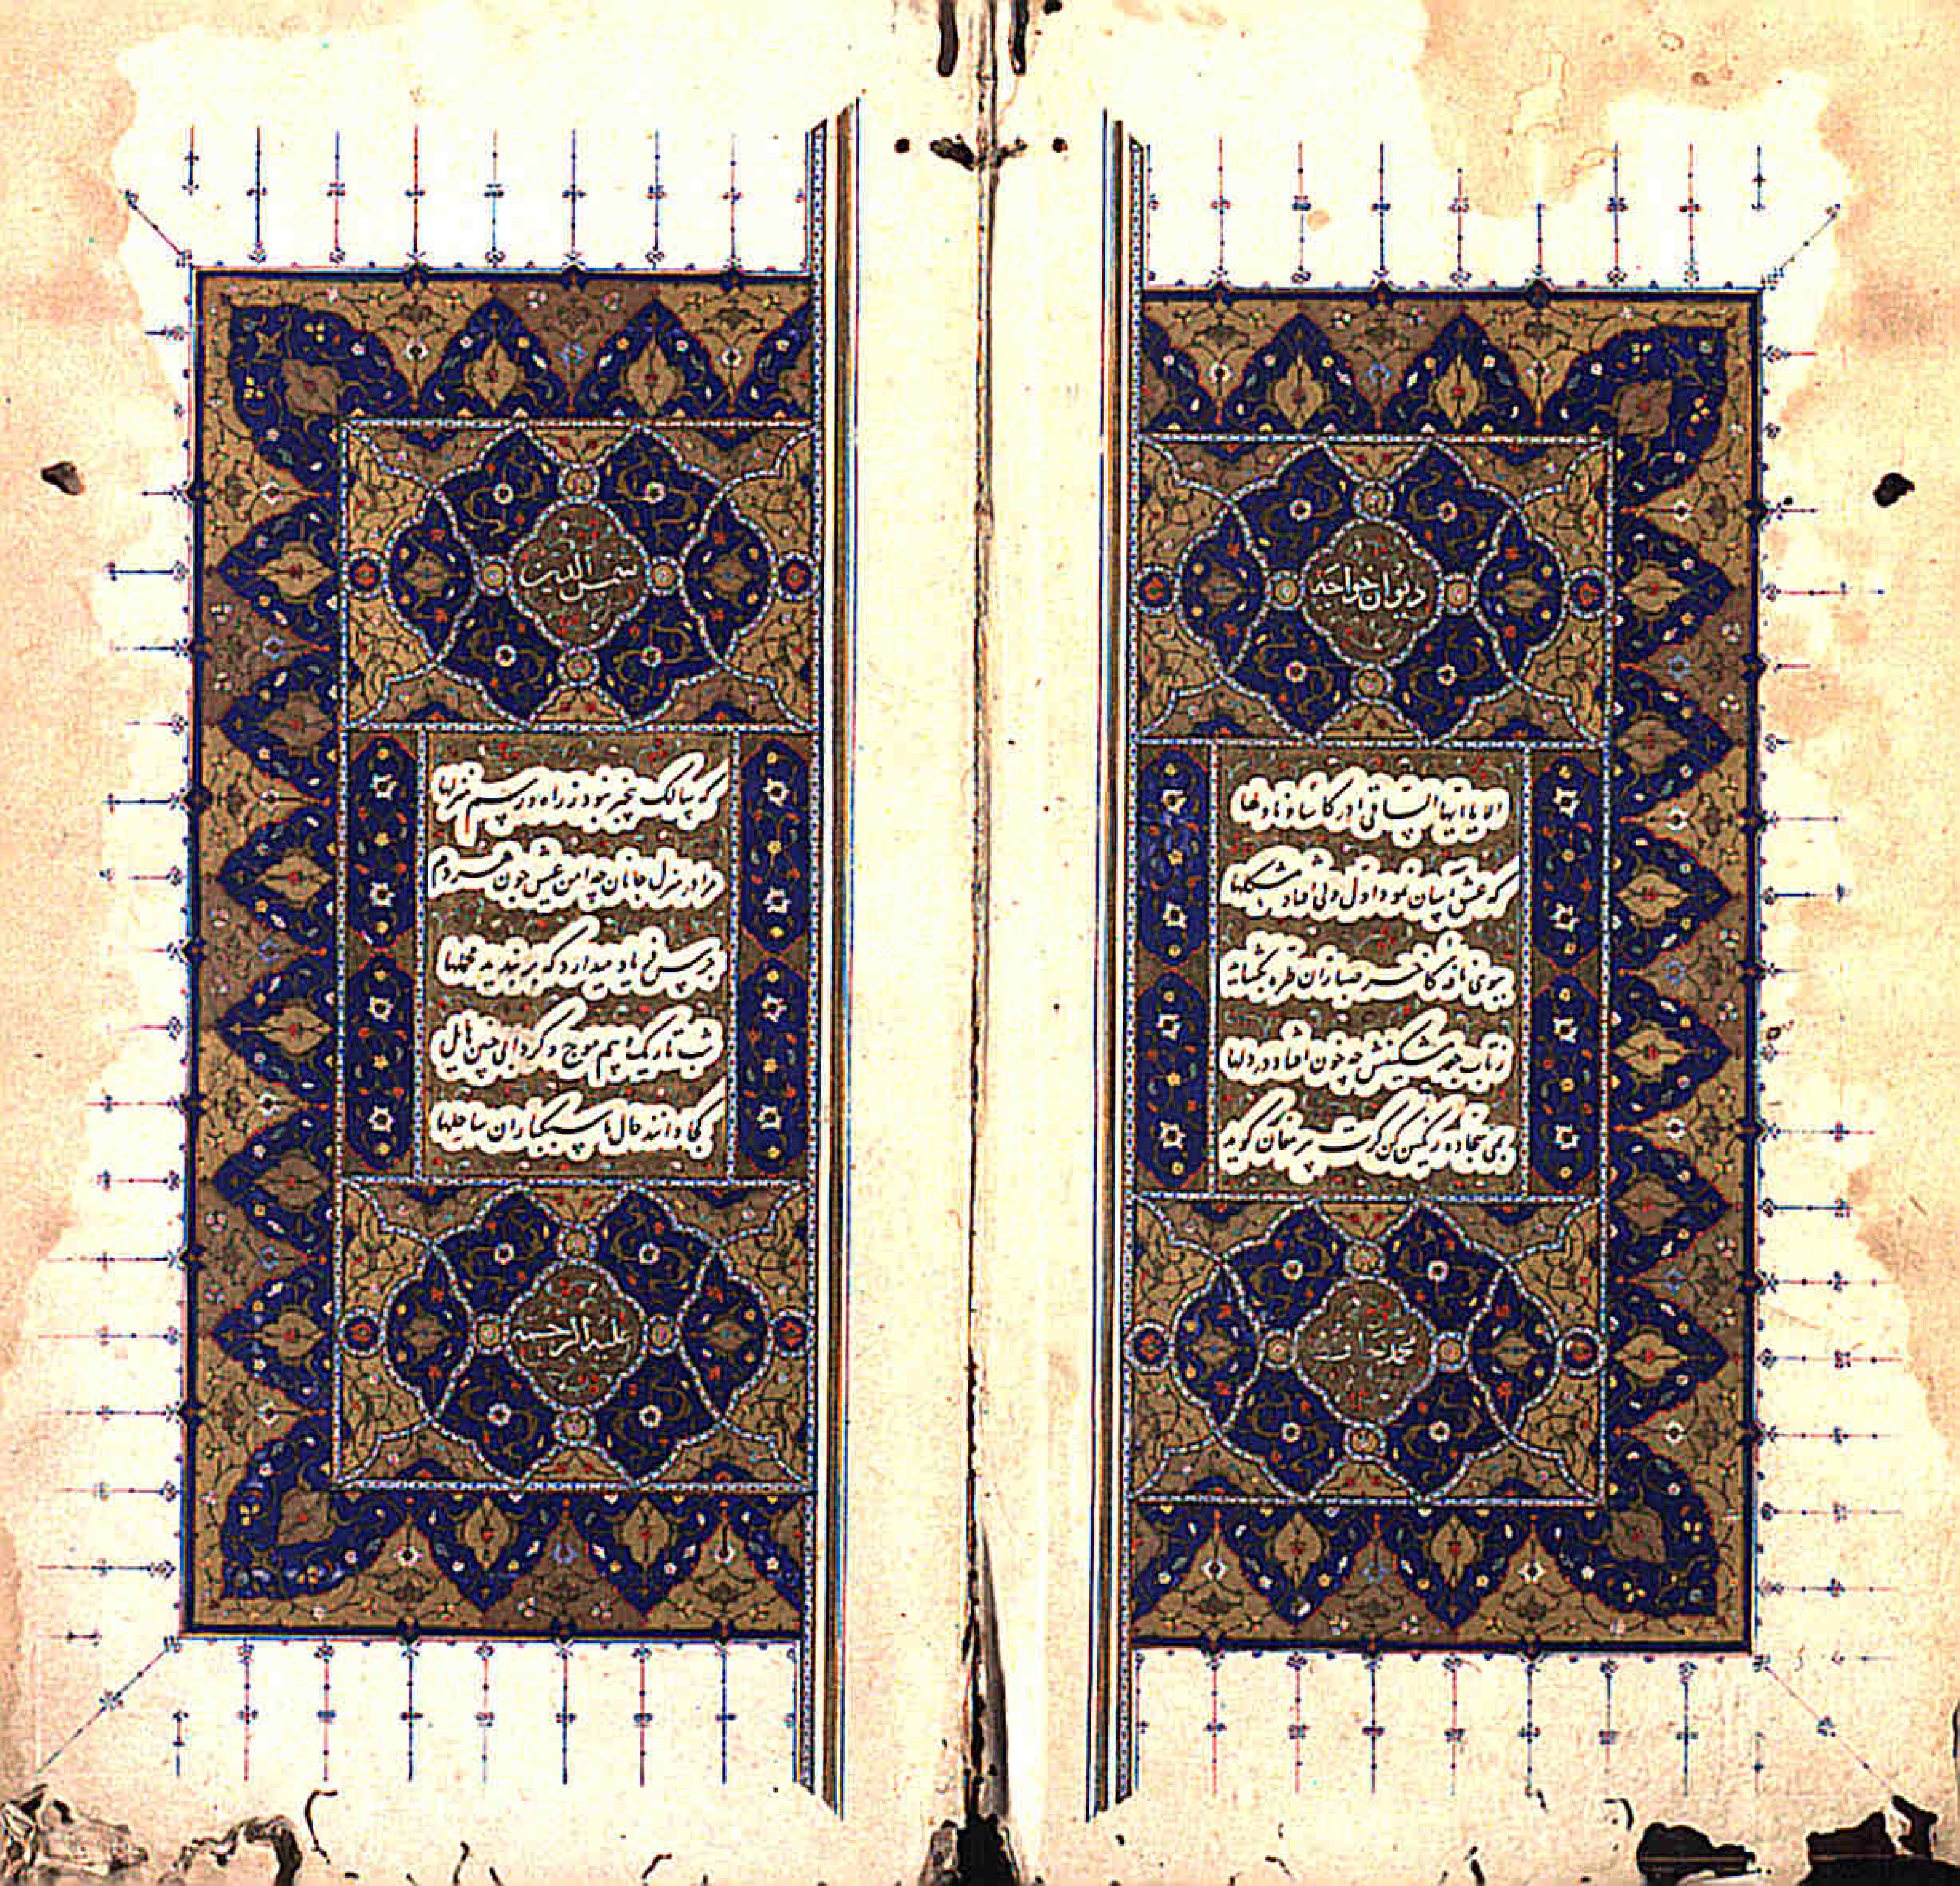 دیوان خواجه
الا یا ایها الساقی ادر کاسا و ناولها
که عشق آسان نمود اول ولی افتاد مشکلها
ببوی نافه کاخر صبا زان طره بگشاید
ز تاب جعد مشکینش چه خون افتاد در دلها
بمی سجاده رنگین کن گرت پیر مغان گوید
محمد حافظ
شمس الدین
که سالک بیخبر نبود ز راه و رسم منزلها
مرا در منزل جانان چه امن عیش چون هر دم
جرس فریاد میدارد که بر بندید محملها
شب تاریک و بیم موج و گردابی چنین هایل
کجا دانند حال ما سبکباران ساحلها
علیه الرحمه